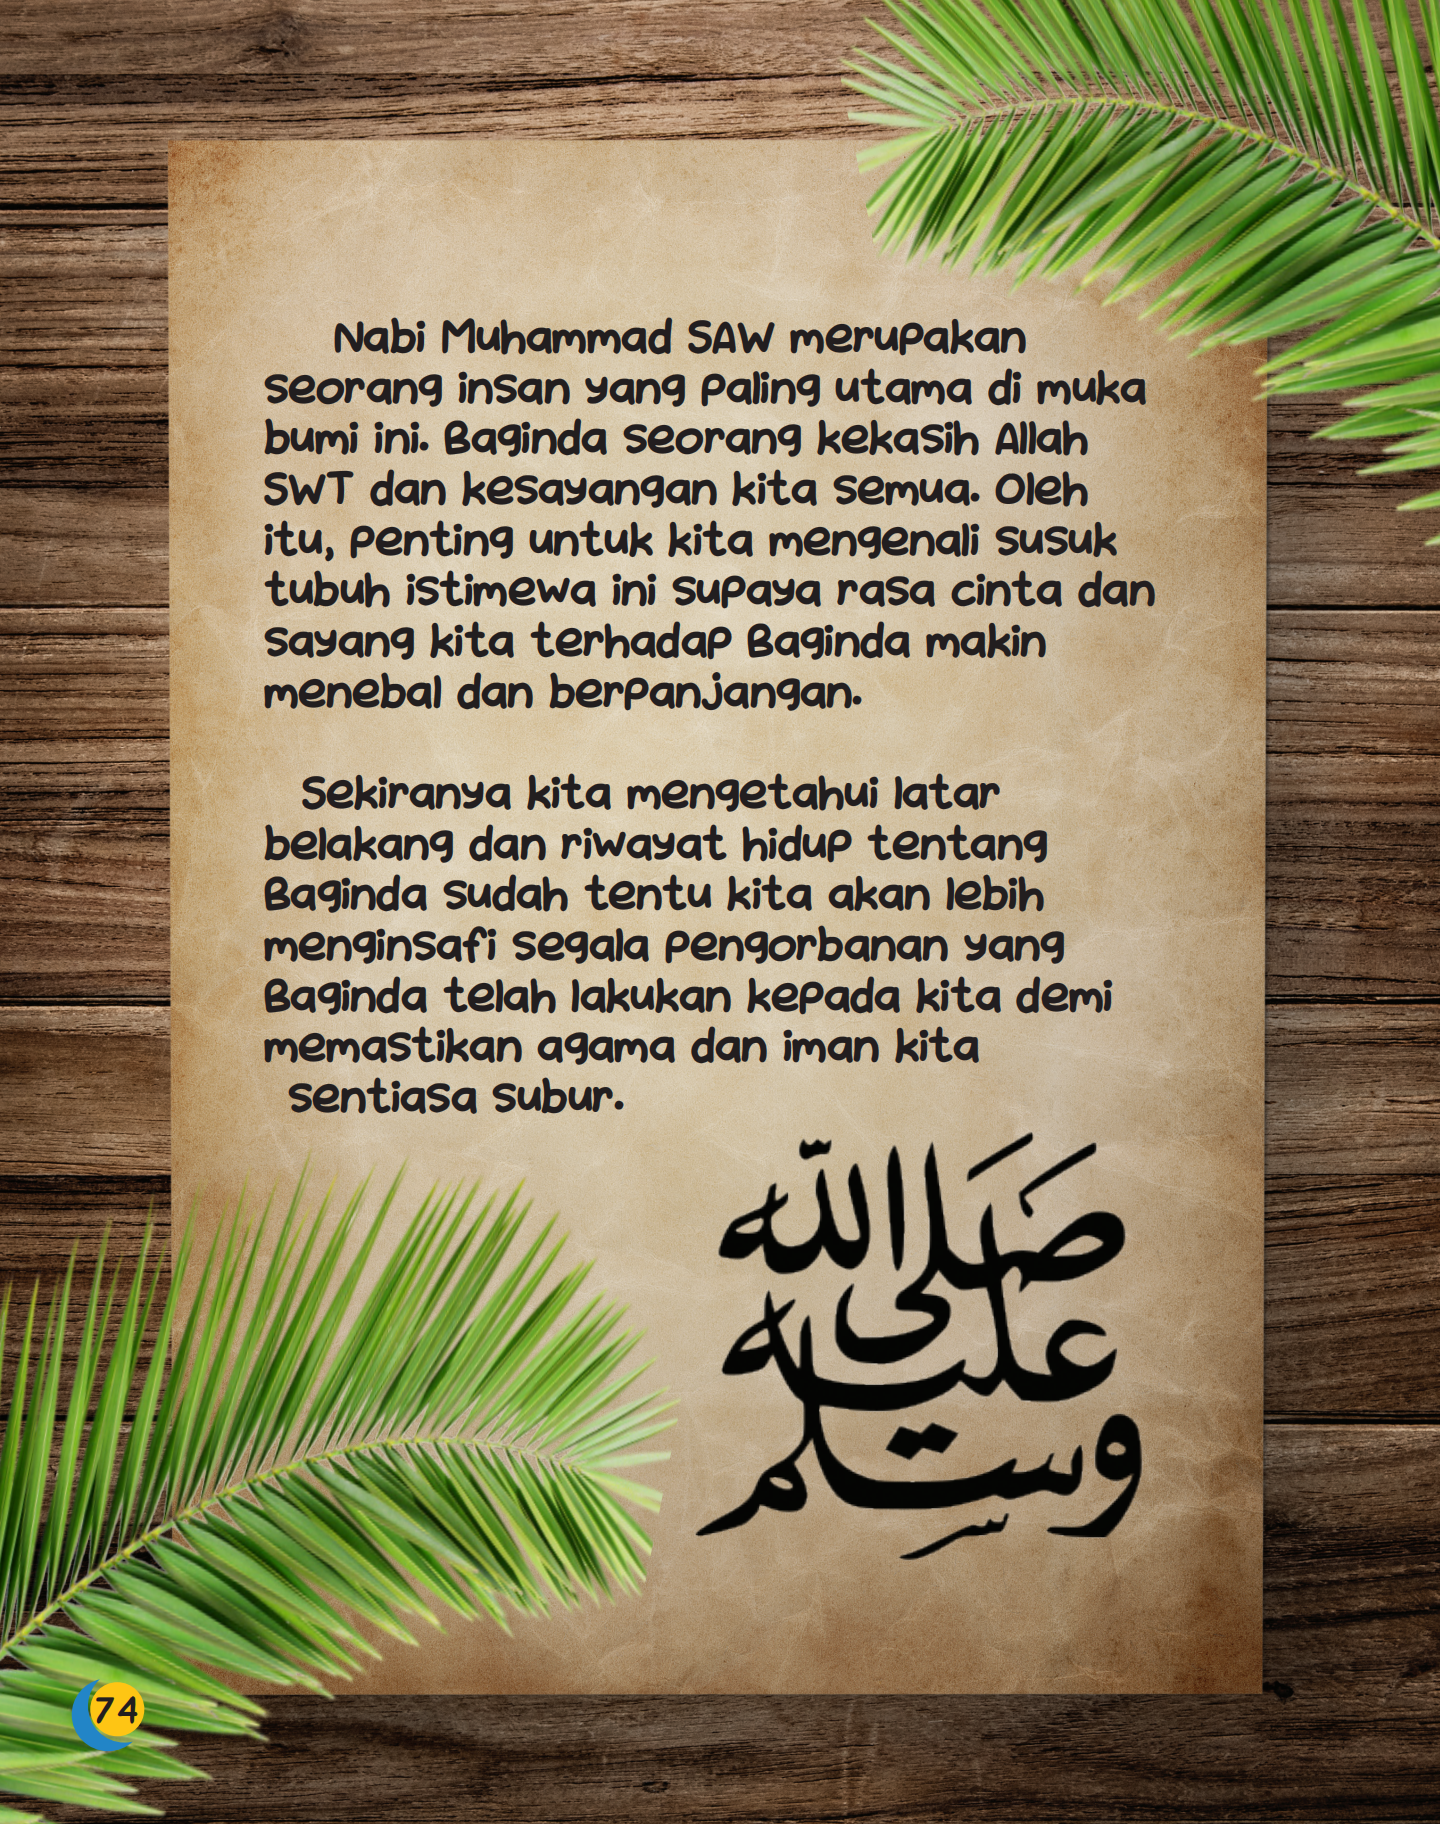 Nabi Muhammad SAW merupakan
seorang insan yang paling utama di muka
bumi ini. Baginda seorang kekasih Allah
SWT dan kesayangan kita semua. Oleh
itu, penting untuk kita mengenali susuk
tubuh istimewa ini supaya rasa cinta dan
sayang kita terhadap Baginda makin
menebal dan berpanjangan.
Sekiranya kita mengetahui latar
belakang dan riwayat hidup tentang
Baginda sudah tentu kita akan lebih
menginsafi segala pengorbanan yang
Baginda telah lakukan kepada kita demi
memastikan agama dan iman kita
sentiasa subur.
صلى الله
عليه
وسلم
74